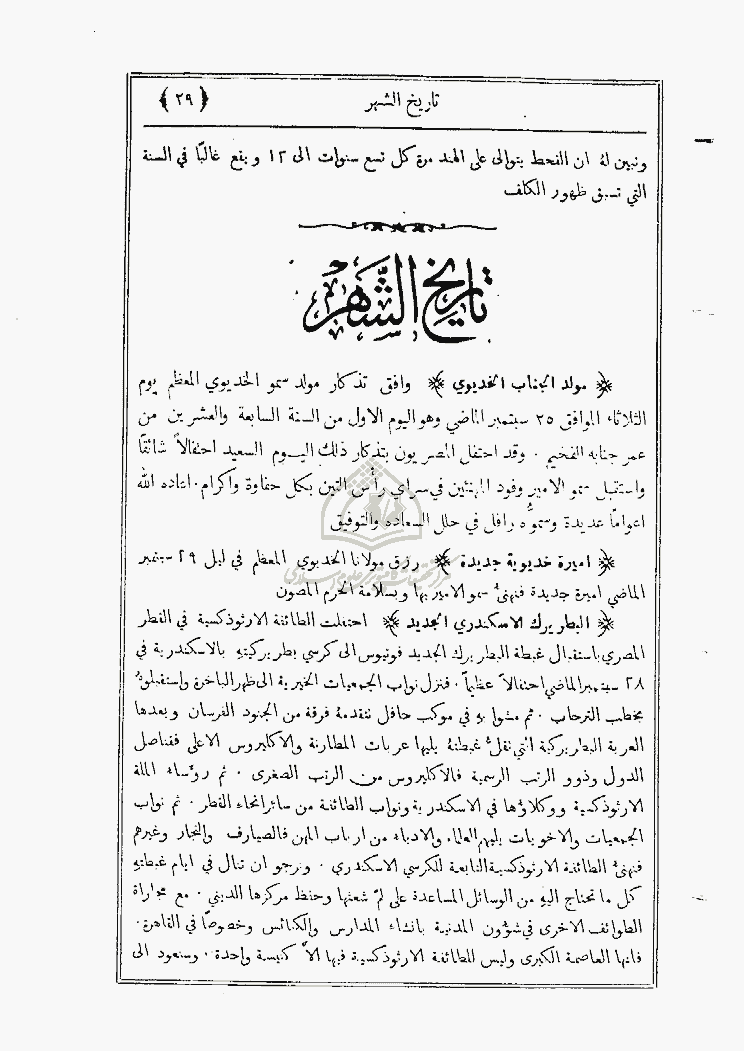 تاريخ الشهر
﴿ ٢٩ ﴾
وتبين له ان القحط يتوالى على الهند مرة كل تسع سنوات الى ١٢ ويقع غالبًا في السنة
التي تسبق ظهور الكلف
تاريخ الشهر
﴿ مولد الجناب الخديوي ﴾ وافق تذكار مولد سمو الخديوي المعظم يوم
الثلاثاء الموافق ٢٥ سبتمبر الماضي وهو اليوم الاول من السنة السابعة والعشرين من
عمر جنابه الفخيم . وقد احتفل المصريون بتذكار ذلك اليوم السعيد احتفالاً شائقًا
واستقبل سمو الامير وفود المهنئين في سراي رأس التين بكل حفاوة واكرام . اعاده الله
اعوامًا عديدة وسموُّه رافل في حلل السعاده والتوفيق
﴿ اميرة خديوية جديدة ﴾ رزق مولانا الخديوي المعظم في ليل ٢٩ سبتمبر
الماضي اميرة جديدة فنهنئُ سمو الامير بها وبسلامة الحرم المصون
﴿ البطريرك الاسكندري الجديد ﴾ احتفلت الطائفة الارثوذكسية في القطر
المصري باستقبال غبطة البطريرك الجديد فوتيوس الى كرسي بطريركيته بالاسكندرية في
٢٨ سبتمبر الماضي احتفالاً عظيماً . فنزل نواب الجمعيات الخيرية الى ظهر الباخرة واستقبلوهُ
بخطب الترحاب . ثم مشوا به في موكب حافل تتقدمهُ فرقة من الجنود الفرسان وبعدها
العربة البطريركية التي تقلُّ غبطتهُ يليها عربات المطارنة والاكليروس الاعلى فقناصل
الدول وذوو الرتب الرسمية فالاكليروس من الرتب الصغرى . ثم رؤساء الملة
الارثوذكسية ووكلاؤها في الاسكندرية ونواب الطائفة من سائر انحاء القطر . ثم نواب
الجمعيات والاخويات يليهم العلماء والادباء من ارباب المهن فالصيارف والتجار وغيرهم
فنهنئُ الطائفة الارثوذكسية التابعة للكرسي الاسكندري . ونرجو ان تنال في ايام غبطته
كل ما تحتاج اليهِ من الوسائل المساعدة على لمّ شعثها وحفظ مركزها الديني . مع مجاراة
الطوائف الاخرى في شؤون المدنية بانشاء المدارس والكنائس وخصوصًا في القاهرة .
فانها العاصمة الكبرى وليس للطائفة الارثوذكسية فيها الاَّ كنيسة واحدة . وسنعود الى